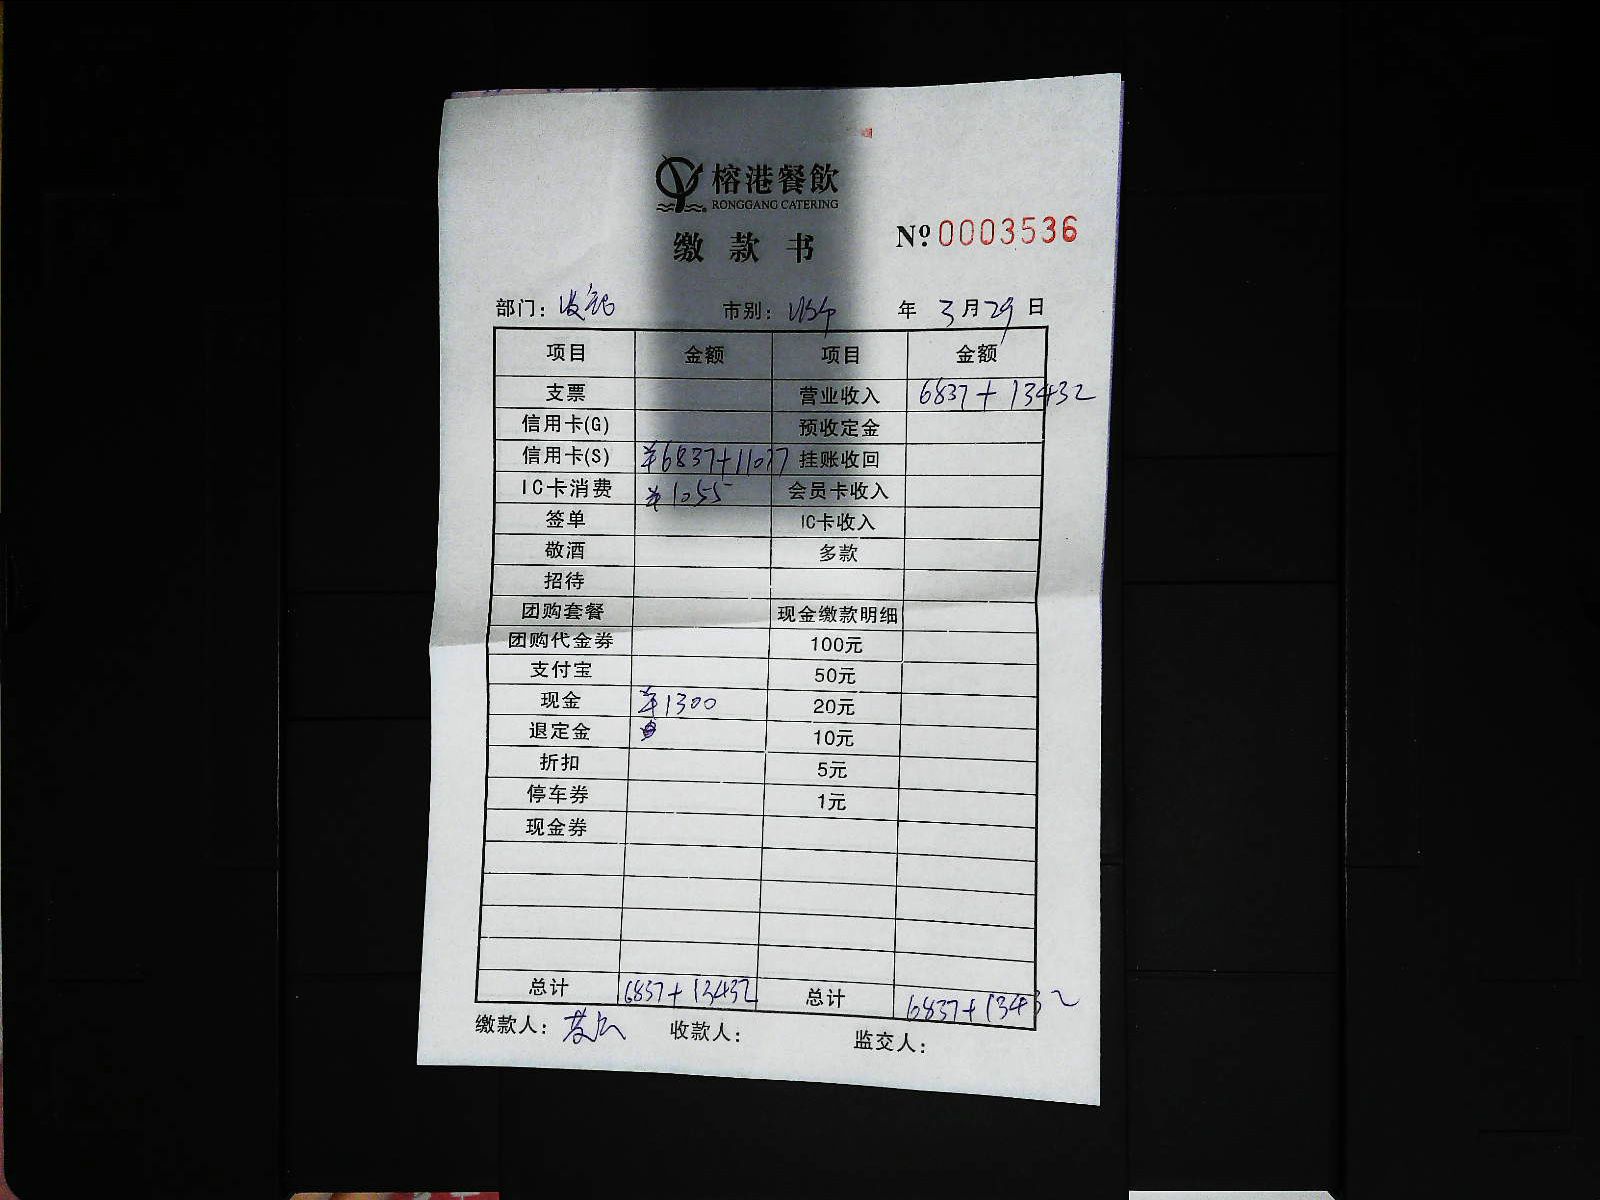 榕港餐飲
RONGGANG CATERING
缴款书
Nº 0003536
部门: 收银 市别: 年 3月29日
项目 金额 项目 金额
支票 营业收入 6837+13432
信用卡(G) 预收定金
信用卡(S) ¥6837+11077 挂账收回
IC卡消费 ¥1055 会员卡收入
签单 IC卡收入
敬酒 多款
招待
团购套餐 现金缴款明细
团购代金券 100元
支付宝 50元
现金 ¥1300 20元
退定金 10元
折扣 5元
停车券 1元
现金券
总计 6837+13432 总计 6837+13432
缴款人: 收款人: 监交人: